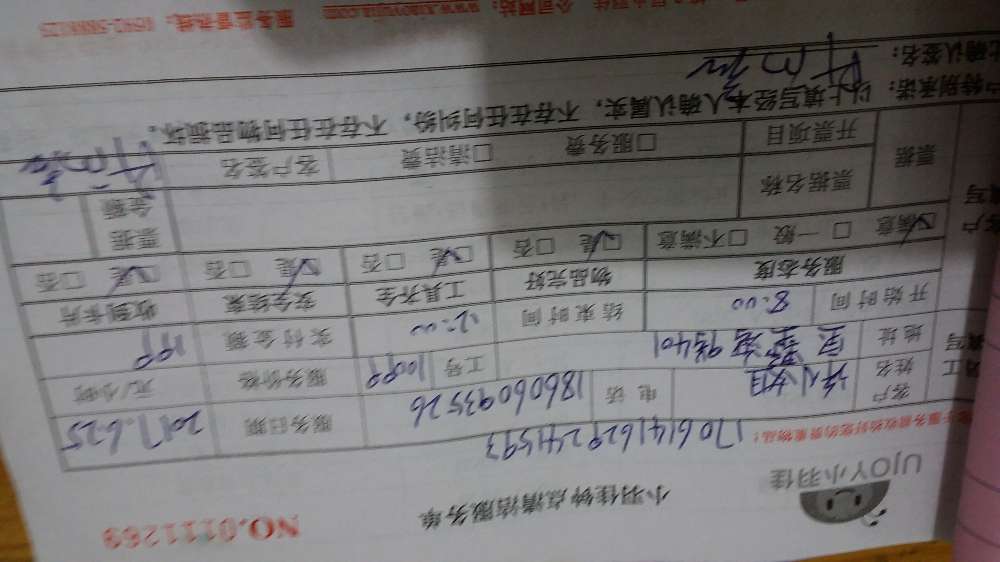 UJOY小羽佳
小羽佳钟点清洁服务单
NO.0111269
服务前收拾好您的贵重物品：
17061416292411593
客户姓名 许小姐 电话 18606093526 服务日期 2017.6.25
地址 401 工号 11099 服务价格 元/小时
开始时间 8:00 结束时间 12:00 实付金额 199
服务态度 物品完好 工具齐全 安全结束 收到卡片
☑满意 □一般 □不满意 ☑是 □否 ☑是 □否 ☑是 □否 ☑是 □否
客户填写
票据 票据名称 票据金额
开票项目 □服务费 □清洁费 客户签名
特别承诺：以上填写经本人确认属实，不存在任何纠纷，不存在任何物品损坏。
确认签名：
公司网站：www.xiaoyujia.com 服务监督热线：0592-5888125